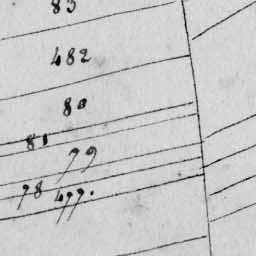 83
482
80
81
79
78 477.